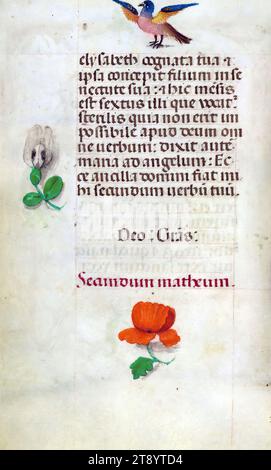 elysabeth cognata tua &
ipsa concepit filium in se
nectute sua: & hic mēsis
est sextus illi que vocat̄
sterilis quia non erit im
possibile apud deum om
ne verbum: dixit aute̅
maria ad angelum: Ec
ce ancilla domini fiat mi
hi secundum verbū tuū.
Deo: Gr̄as:
Secundum matheum.
alamy
Image ID: 2T8YTD4
www.alamy.com